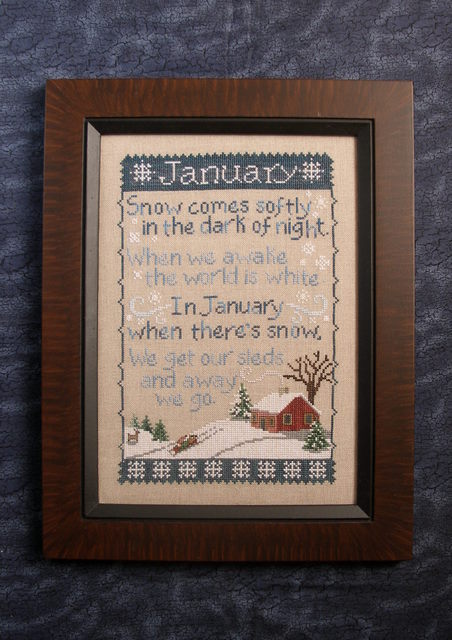 January
Snow comes softly
in the dark of night.
When we awake
the world is white.
In January
when there's snow,
We get our sleds
and away
we go.